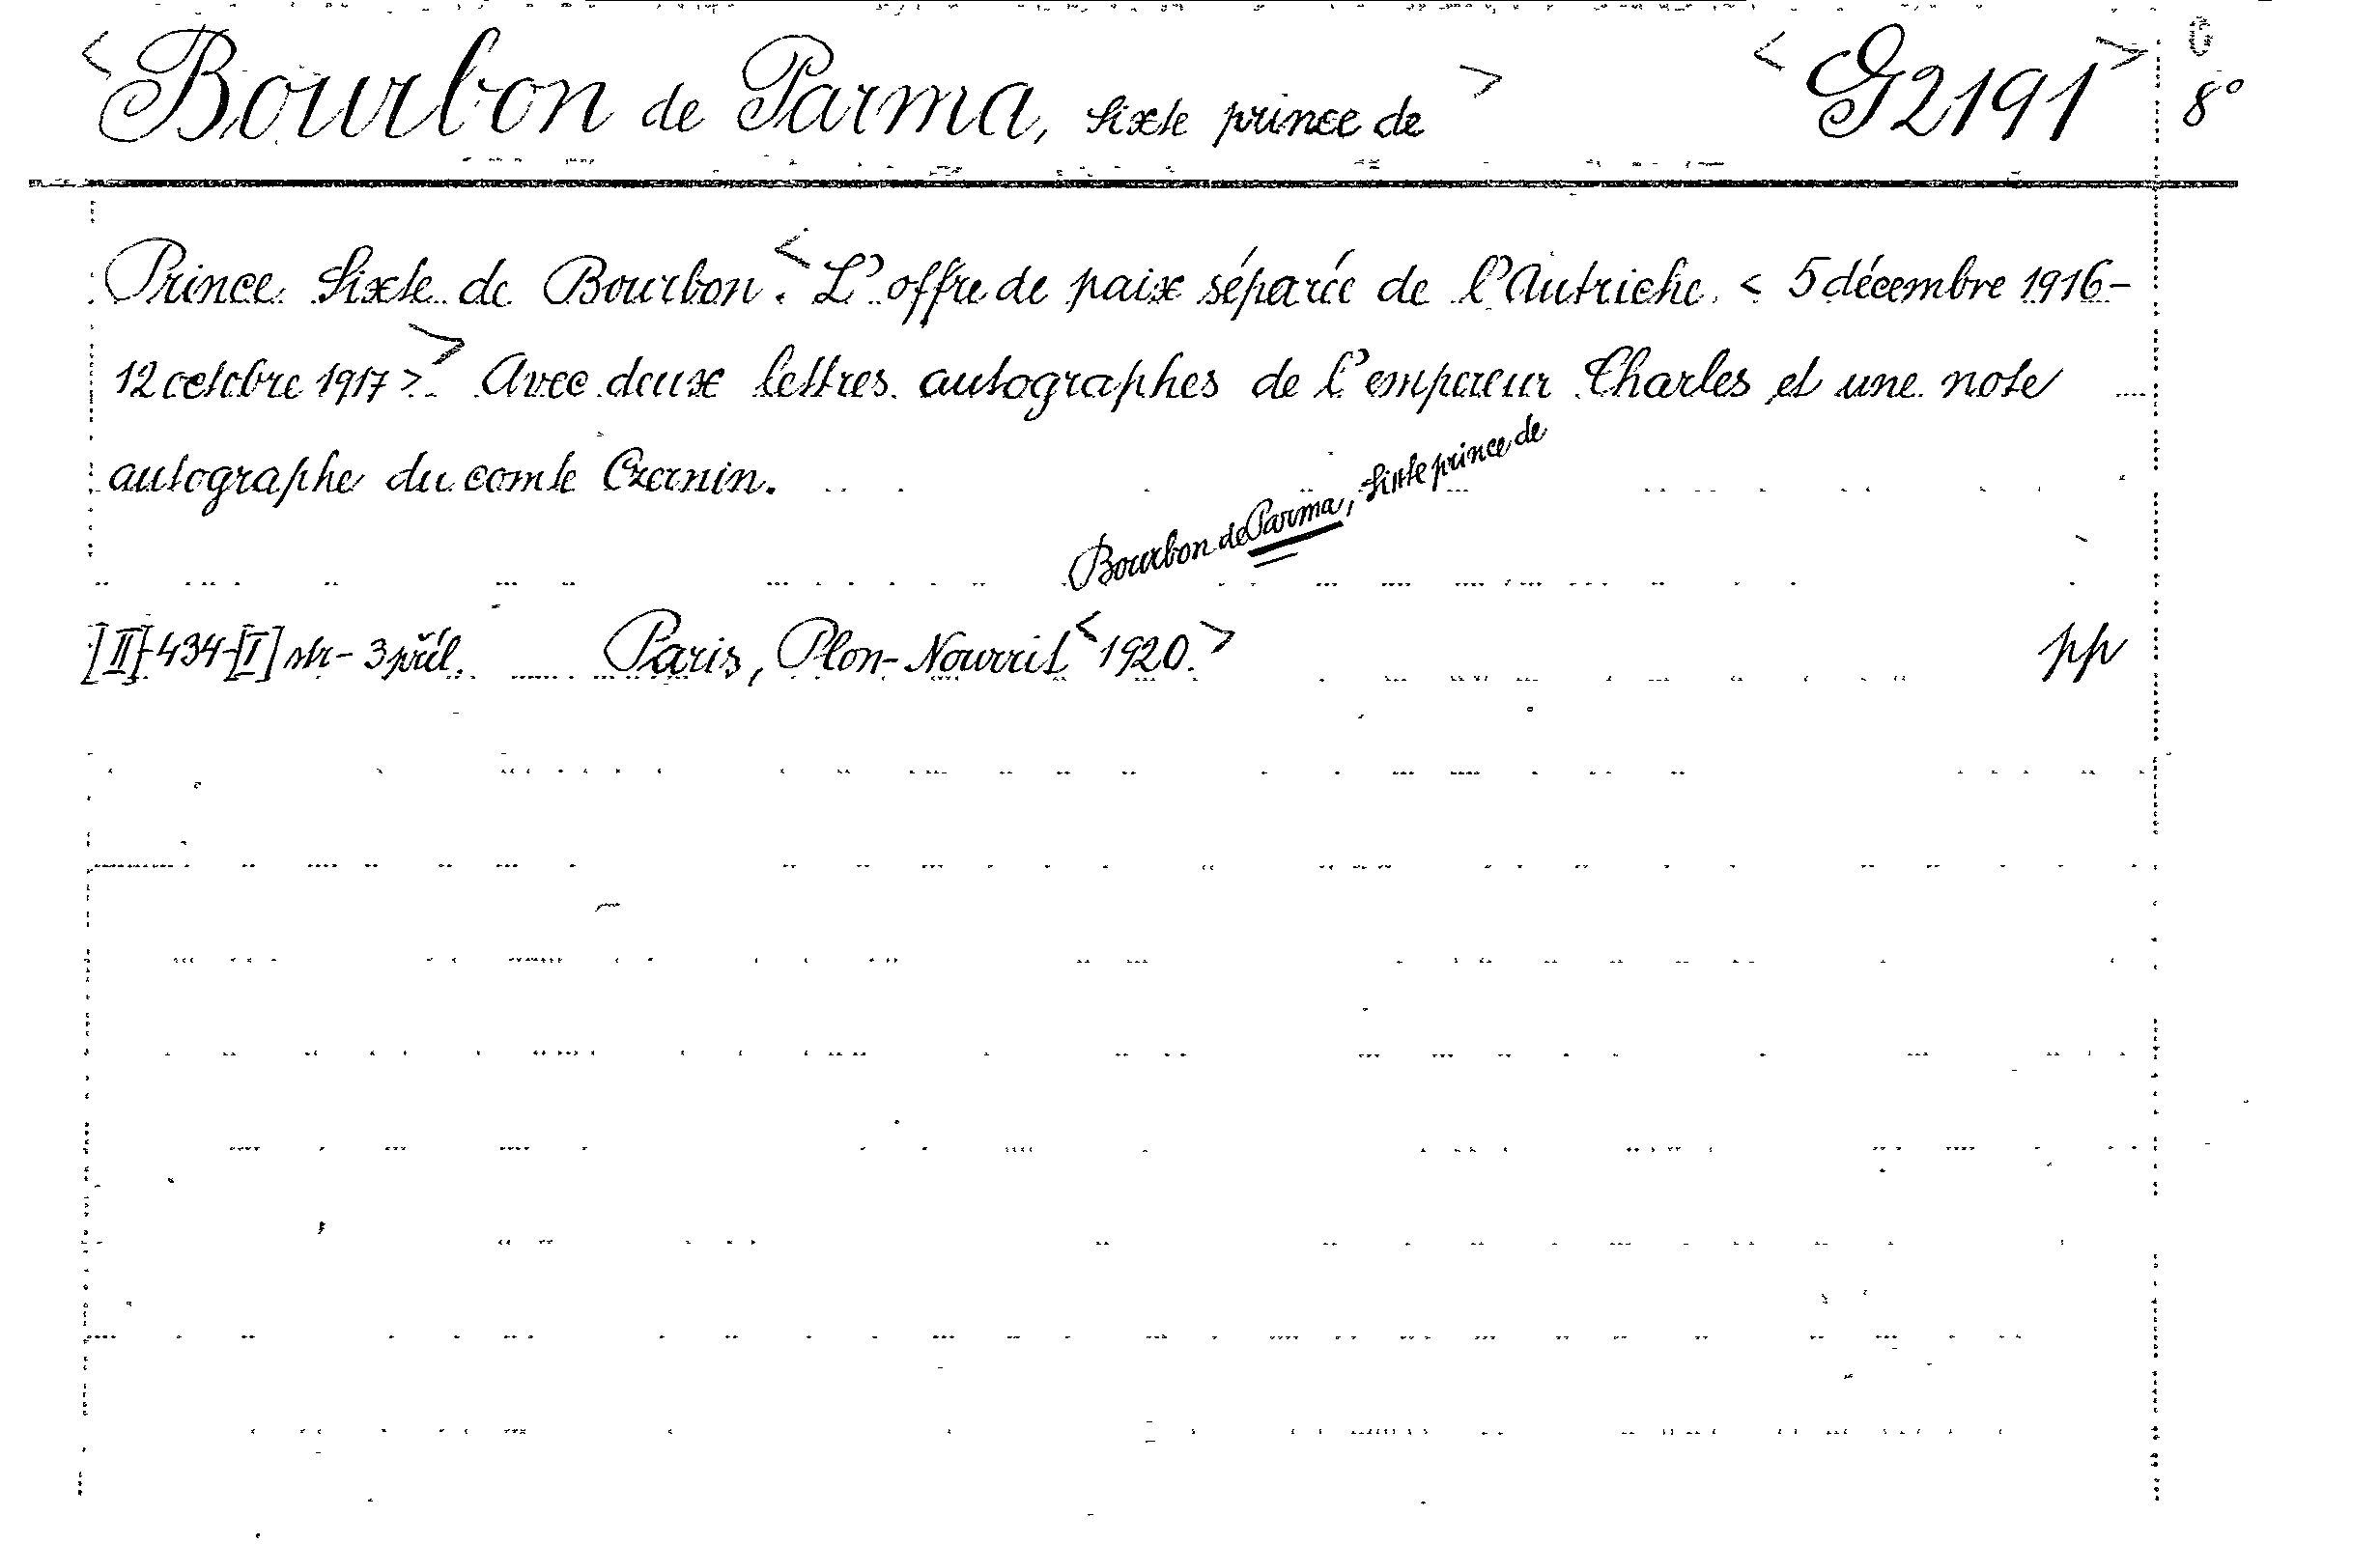 <Bourbon de Parma, Sixte prince de> <G2191>
8°
Prince Sixte de Bourbon. <L'offre de paix séparée de l'Autriche. < 5 décembre 1916-
12 octobre 1917>.> Avec deux lettres autographes de l'empereur Charles et une note
autographe du comte Czernin.
Bourbon de Parma, Sixte prince de
[II]-434-[I] str - 3 příl. Paris, Plon-Nourrit <1920.> pp